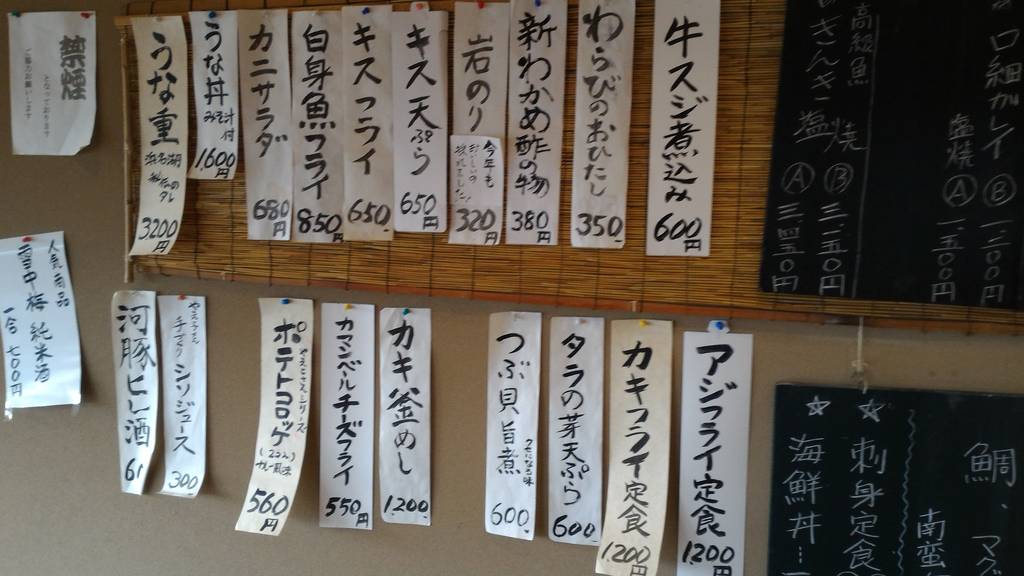 牛スジ煮込み
600円
わらびのおひたし
350
新わかめ酢の物
380円
岩のり
今年も
320
キス天ぷら
650円
キスフライ
650
白身魚フライ
850円
カニサラダ
680円
うな丼
みそ汁付
1600円
うな重
浜名湖
3200円
禁煙
となっております
ご協力お願いします
アジフライ定食
1200円
カキフライ定食
1200円
タラの芽天ぷら
600
つぶ貝旨煮
600
カキ釜めし
1200
カマンベールチーズフライ
550円
ポテトコロッケ
(2コ入)
カレー風味
560円
手づくりシソジュース
300
河豚ヒレ酒
人気商品
雪中梅 純米酒
一合 七〇〇円
口細カレイ
塩焼 Ⓐ 一、一五〇円
Ⓑ 一、二〇〇円
高級魚
きんき 塩焼
Ⓐ 三、四五〇円
Ⓑ 三、二五〇円
鯛、マグ
南蛮
☆刺身定食
☆海鮮丼